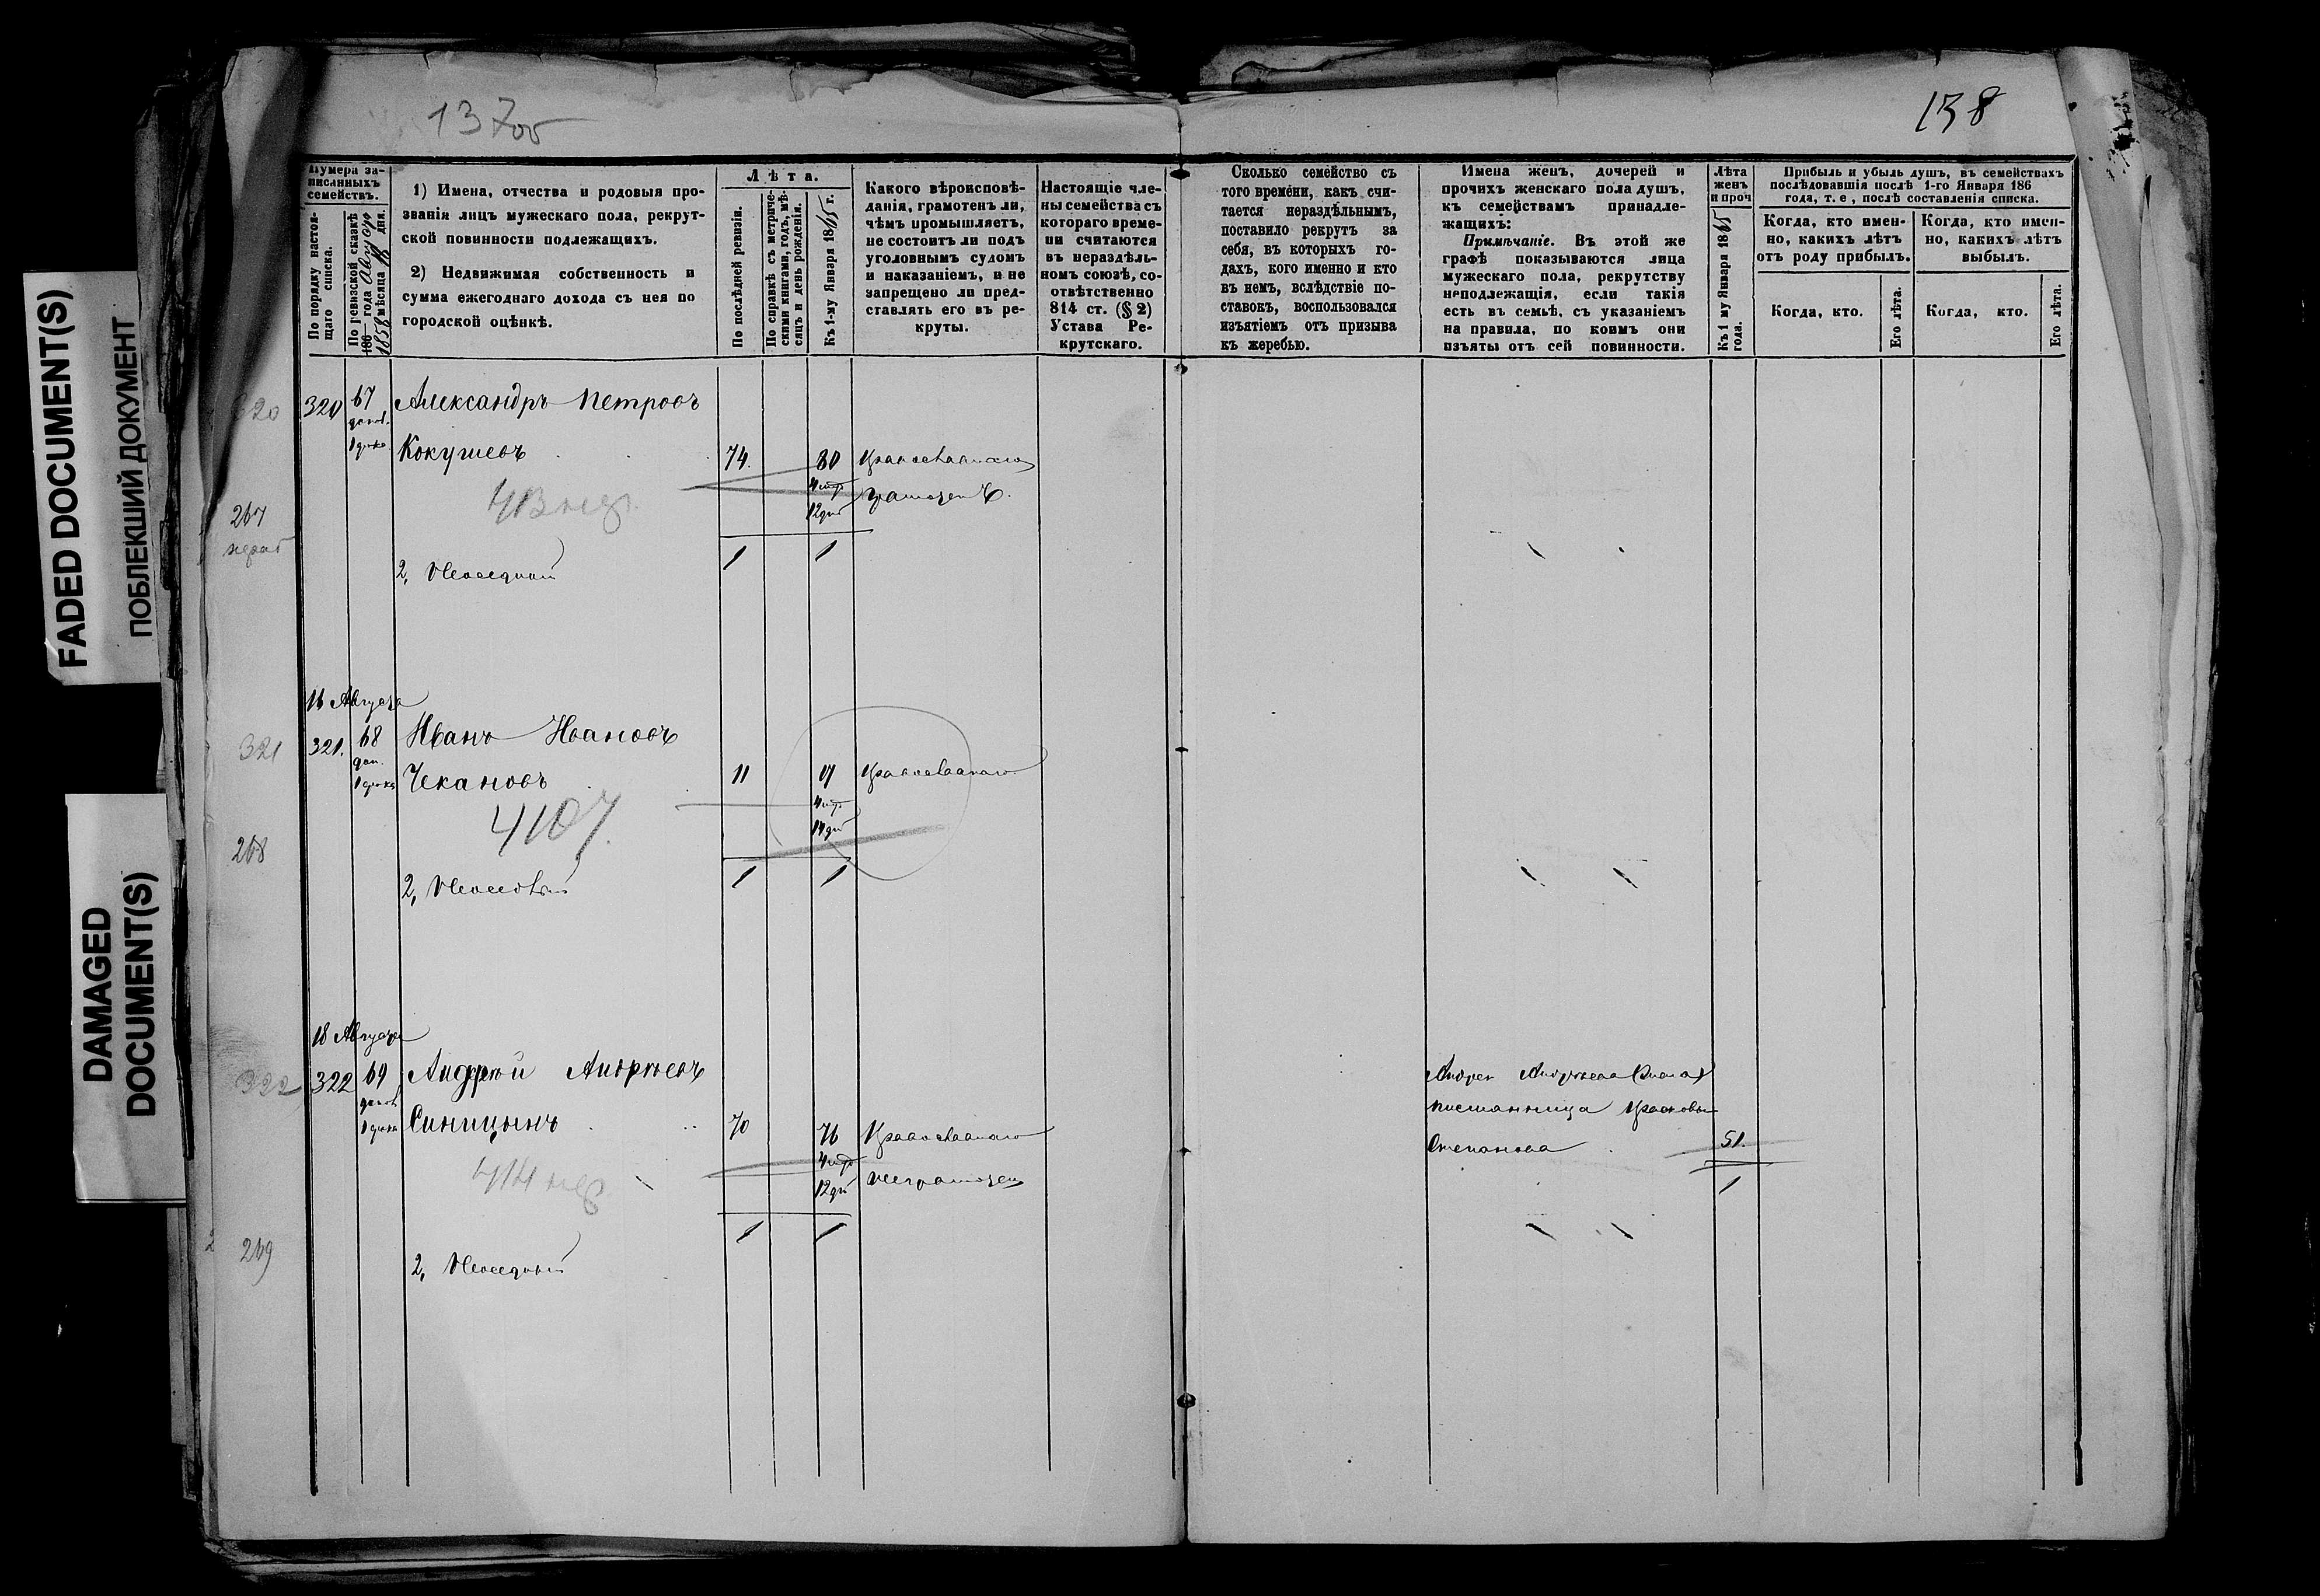 137об
138
FADED DOCUMENT(S)
ПОБЛЕКШИЙ ДОКУМЕНТ
DAMAGED
DOCUMENT(S)
Нумера за-
писанныхъ
семействъ.
По порядку настоя-
щаго списка.
По ревизской сказкѣ
186 года
1858 мѣсяца 18 дня.
1) Имена, отчества и родовыя про-
званія лицъ мужескаго пола, рекрут-
ской повинности подлежащихъ.
2) Недвижимая собственность и
сумма ежегоднаго дохода съ нея по
городской оцѣнкѣ.
Лѣта.
По послѣдней ревизіи.
По справкѣ съ метриче-
скими книгами, годъ, мѣ-
сяцъ и день рожденія.
Къ 1-му Января 1865 г.
Какого вѣроисповѣ-
данія, грамотенъ ли,
чѣмъ промышляетъ,
не состоитъ ли подъ
уголовнымъ судомъ
и наказаніемъ, и не
запрещено ли пред-
ставлять его въ ре-
круты.
Настоящіе чле-
ны семейства съ
котораго време-
ни считаются
въ нераздѣль-
номъ союзѣ, со-
отвѣтственно
814 ст. (§ 2)
Устава Ре-
крутскаго.
Сколько семейство съ
того времени, какъ счи-
тается нераздѣльнымъ,
поставило рекрутъ за
себя, въ которыхъ го-
дахъ, кого именно и кто
въ немъ, вслѣдствіе по-
ставокъ, воспользовался
изъятіемъ отъ призыва
къ жеребью.
Имена женъ, дочерей и
прочихъ женскаго пола душъ,
къ семействамъ принадле-
жащихъ:
Примѣчаніе. Въ этой же
графѣ показываются лица
мужескаго пола, рекрутству
неподлежащія, если такія
есть въ семьѣ, съ указаніемъ
на правила, по коимъ они
изъяты отъ сей повинности.
Лѣта
женъ
и проч
Къ 1 му Января 1865
года.
Прибыль и убыль душъ, въ семействахъ
послѣдовавшія послѣ 1-го Января 186
года, т. е., послѣ составленія списка.
Когда, кто имен-
но, какихъ лѣтъ
отъ роду прибылъ.
Когда, кто имен-
но, какихъ лѣтъ
выбылъ.
Когда, кто.
Его лѣта.
Когда, кто.
Его лѣта.
320 320 67 Александръ Петровъ
Кокушевъ 74. 80 Православнаго
4 мѣ
12 дн грамотенъ.
267
1 1
2, Неоседлый
16 Августа
321 321. 68 Иванъ Ивановъ
Чекановъ 11 17 Православнаго
4 мѣ
14 дн
4107.
268
1 1
2, Неоседлый
18 Августа
322 322 69 Андрей Андреевъ
Синицынъ 70 76 Православнаго
4 мѣ
12 дн неграмотенъ
269
1 1
2, Неоседлый
Андрея Андреева
Степанова 51.
1